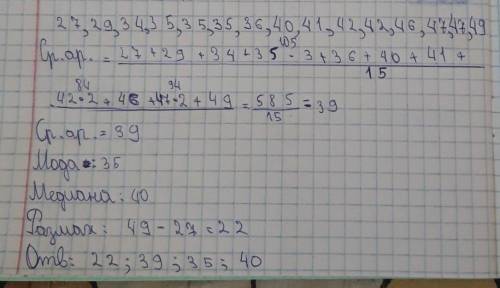 27,29,34,35,35,35,36,40,41,42,42,46,47,47,49
105
Ср.ар. = 27+29+34+35·3+36+40+41+
15
84 94
42·2+46+47·2+49 = 585 = 39
15
Ср.ар. = 39
Мода: 35
Медиана: 40
Размах: 49-27=22
Отв: 22; 39; 35; 40